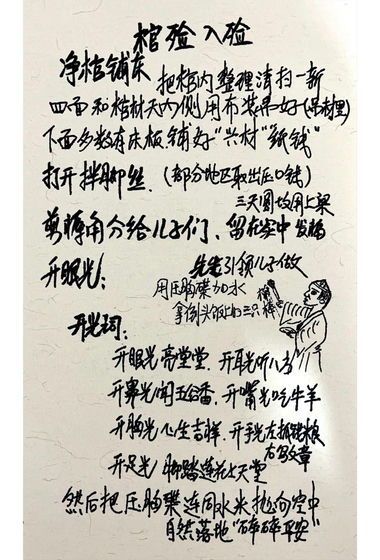 棺殓入殓
净棺铺东 把棺内整理清扫一新
四面和棺材天内侧用布装吊好(吊材里)
下面多数在床板铺好"兴材""纸钱"
打开拌脚丝.(部分地区取出压口钱)
三天圆坟用上梁
剪褥角分给儿子们、留在家中发福
开眼光: 先生引领儿子做
用压胸碟加水
拿倒头饭上的三只
棉棒
开光词:
开眼光亮堂堂.开耳光听八方
开鼻光闻五谷香.开嘴光吃牛羊
开胸光心生吉祥.开手光左抓钱粮
右写文章
开足光 脚踏莲花上天堂
然后把压胸碟连同水米抛向空中
自然落地"碎碎平安"